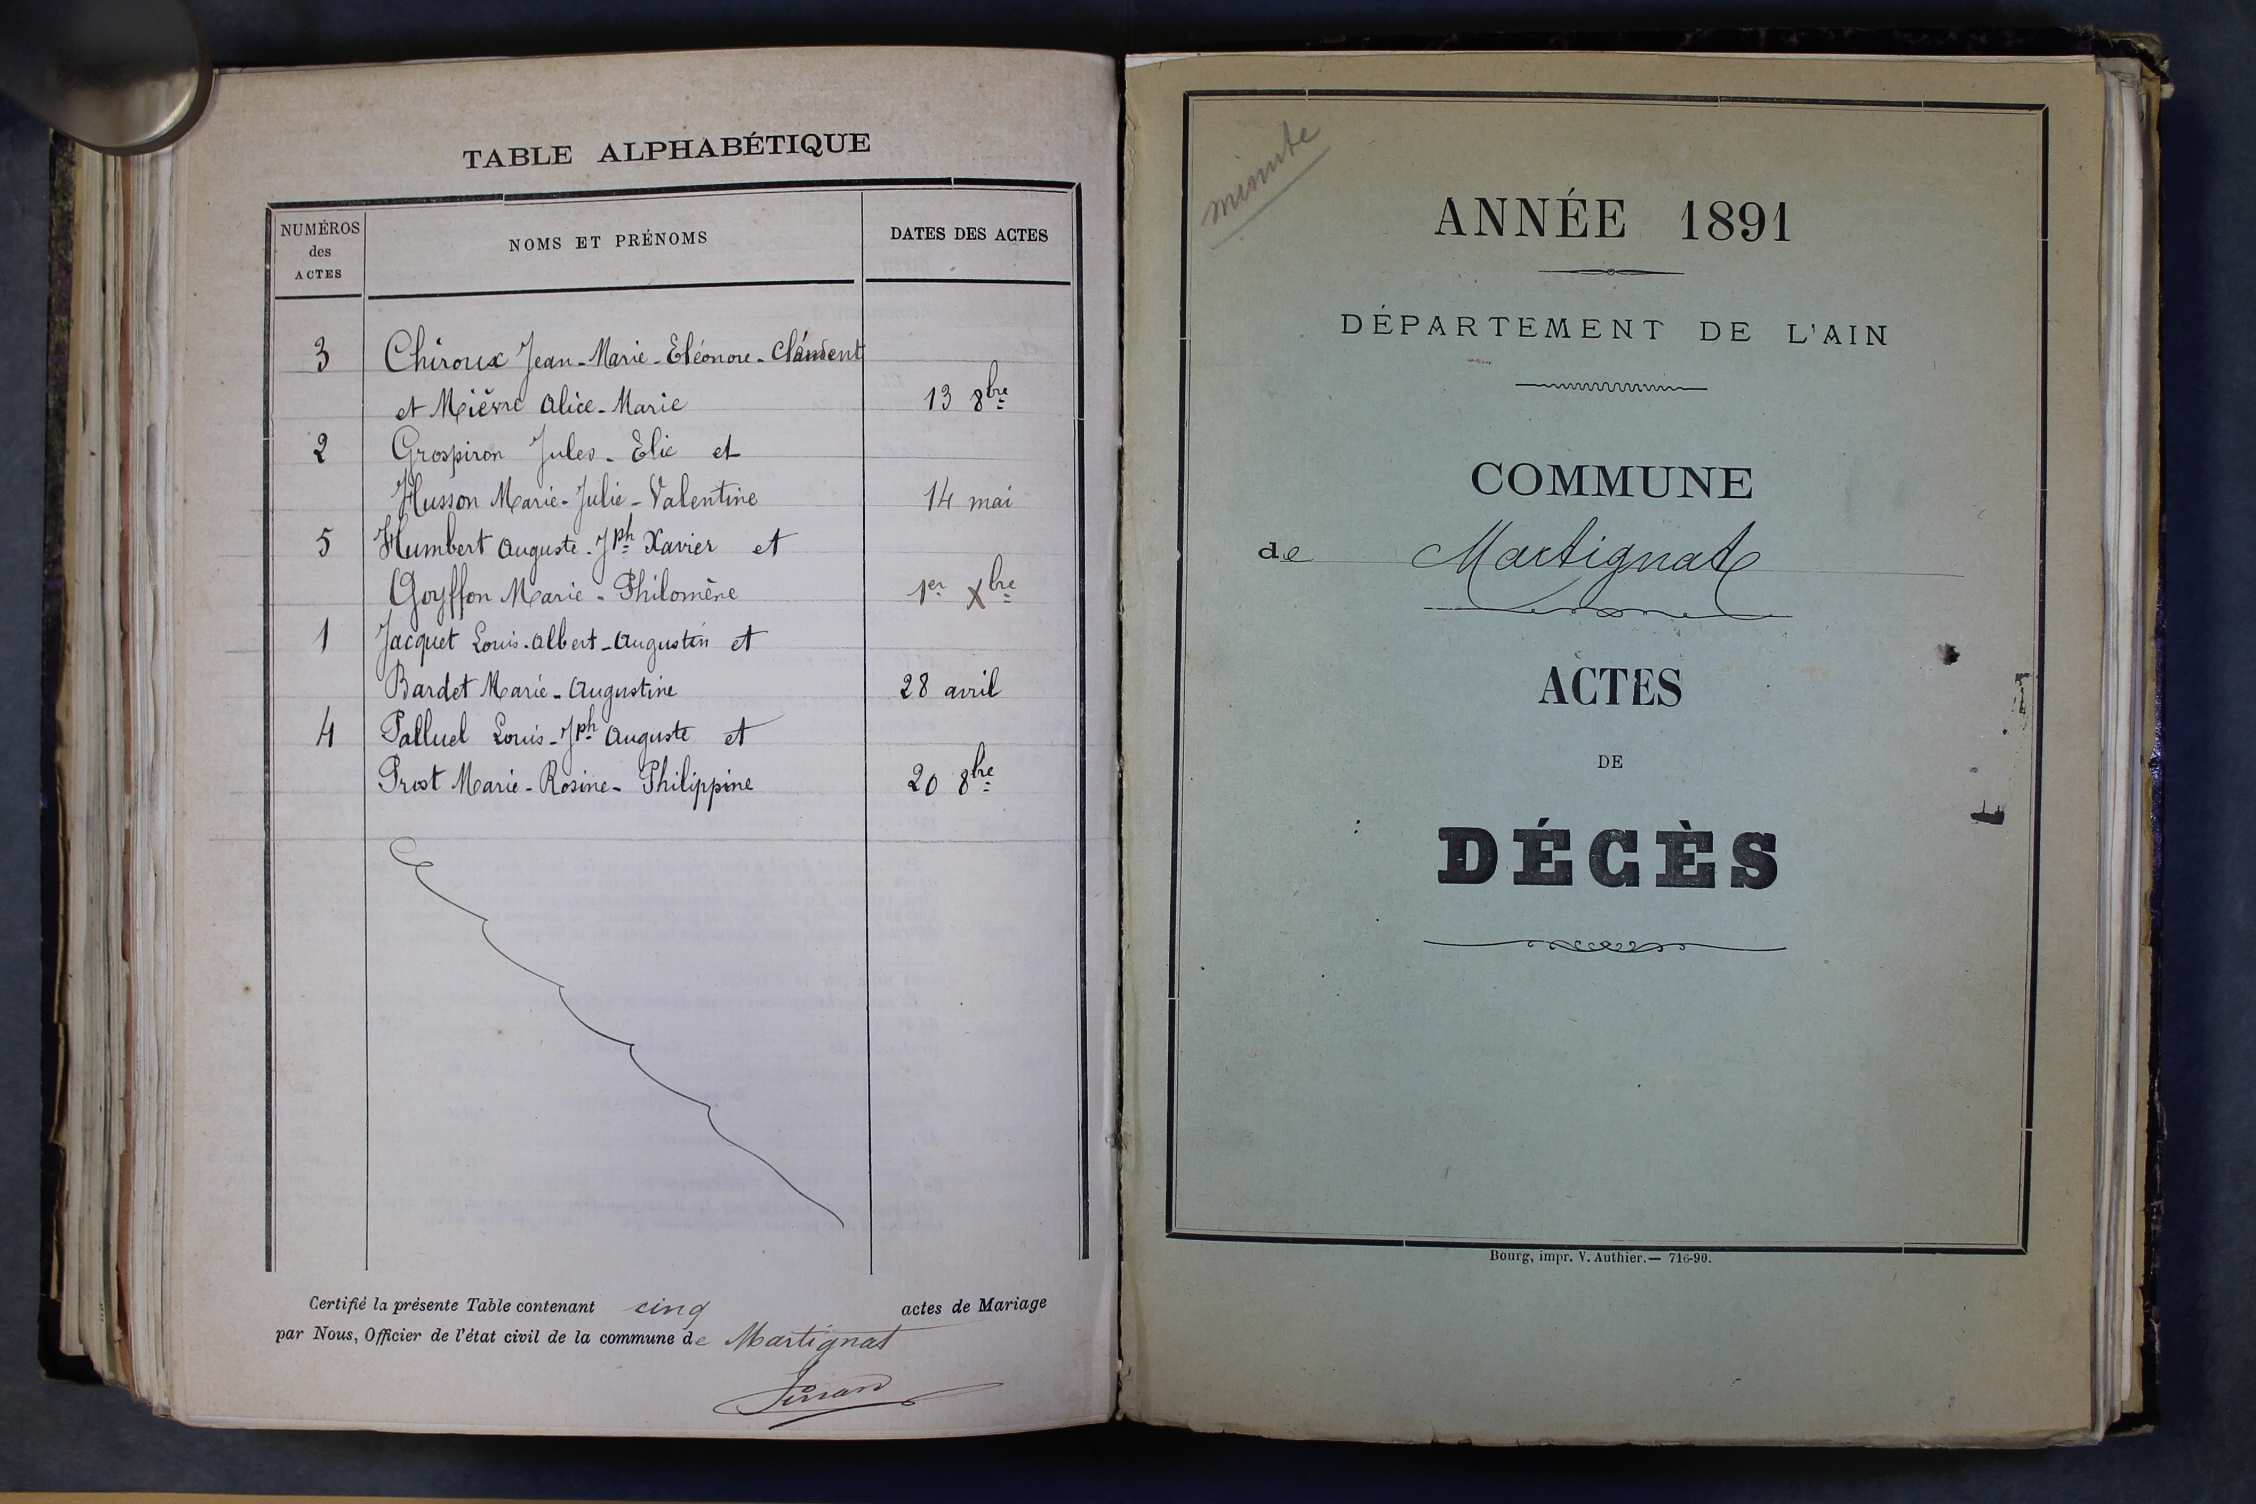 TABLE ALPHABÉTIQUE
NUMÉROS des ACTES
NOMS ET PRÉNOMS
DATES DES ACTES
3 Chiroux Jean-Marie-Eléonore-Clément
et Mièvre Alice-Marie 13 8bre
2 Grospiron Jules-Elie et
Husson Marie-Julie-Valentine 14 mai
5 Humbert Auguste-Jph Xavier et
Goyffon Marie-Philomène 1er Xbre
1 Jacquet Louis-Albert-Augustin et
Bardet Marie-Augustine 28 avril
4 Palluel Louis-Jph Auguste et
Prost Marie-Rosine-Philippine 20 8bre
Certifié la présente Table contenant cinq actes de Mariage
par Nous, Officier de l'état civil de la commune de Martignat
minute
ANNÉE 1891
DÉPARTEMENT DE L'AIN
COMMUNE
de Martignat
ACTES
DE
DÉCÈS
Bourg, impr. V. Authier.— 716-90.